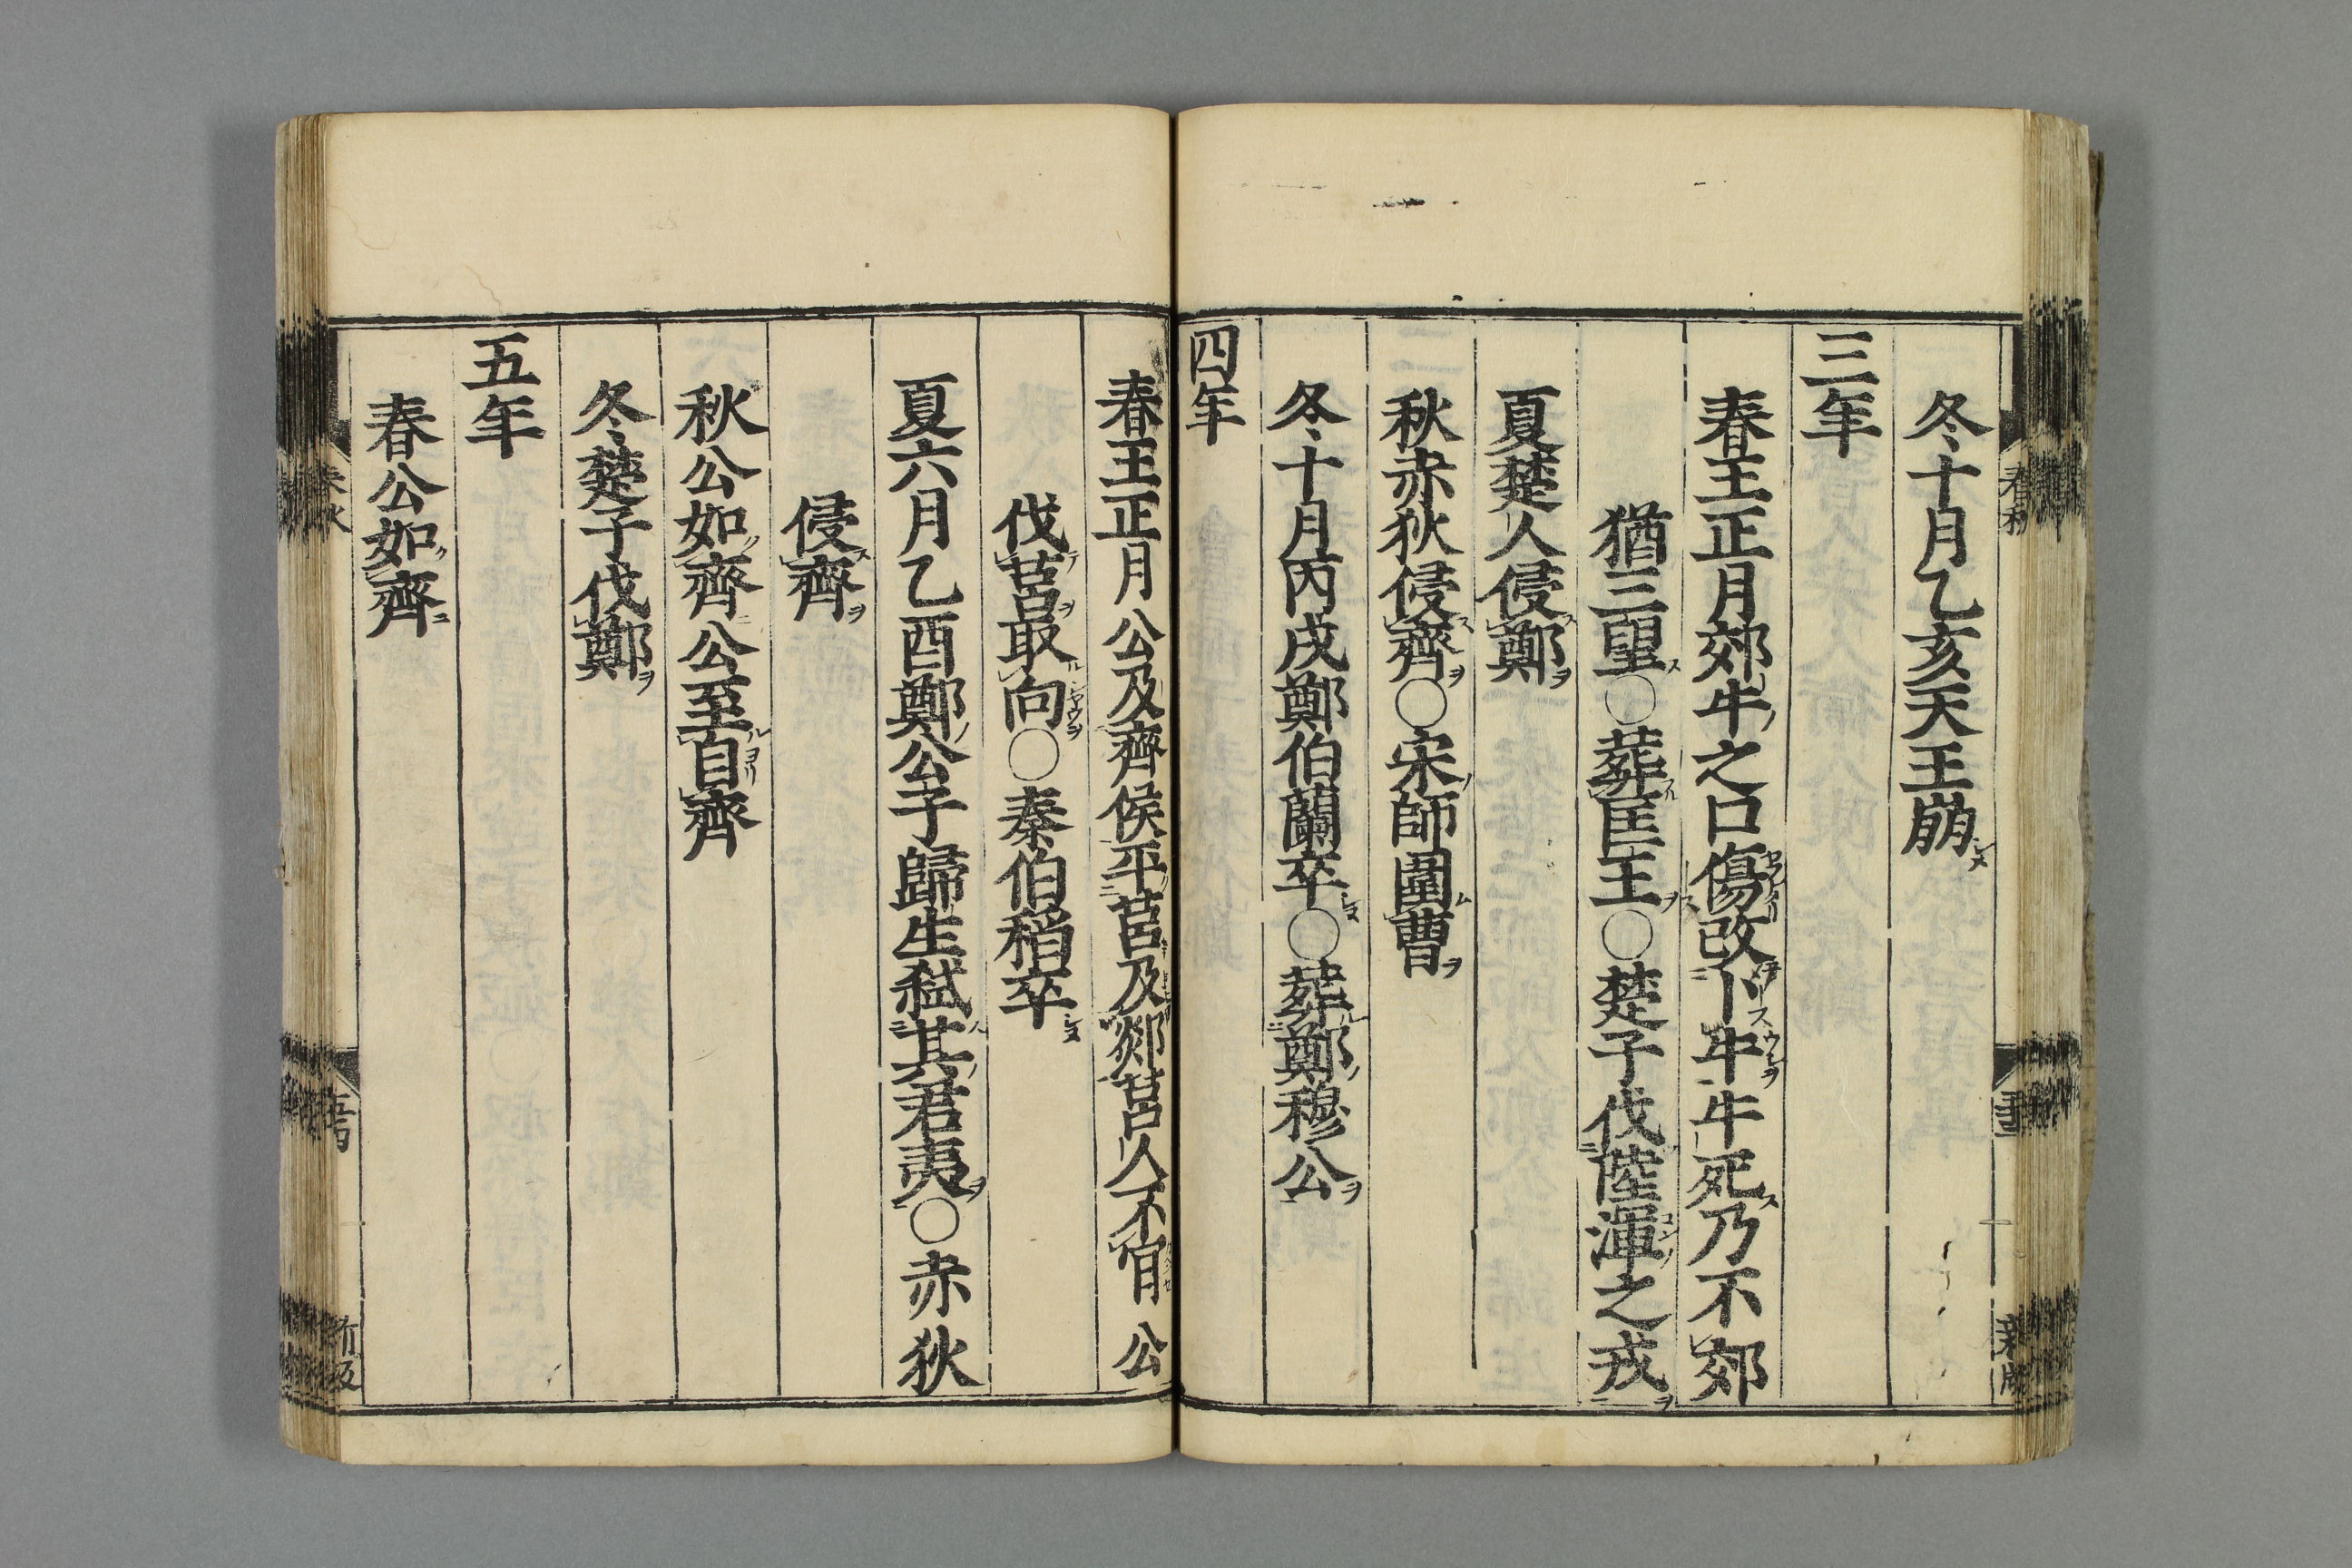 冬十月乙亥天王崩
三年
春王正月郊牛之口傷改卜牛牛死乃不郊
猶三望○葬匡王○楚子伐陸渾之戎
夏楚人侵鄭
秋赤狄侵齊○宋師圍曹
冬十月丙戌鄭伯蘭卒○葬鄭穆公
四年
春王正月公及齊侯平莒及郯莒人不肯公
伐莒取向○秦伯稻卒
夏六月乙酉鄭公子歸生弑其君夷○赤狄
侵齊
秋公如齊公至自齊
冬楚子伐鄭
五年
春公如齊